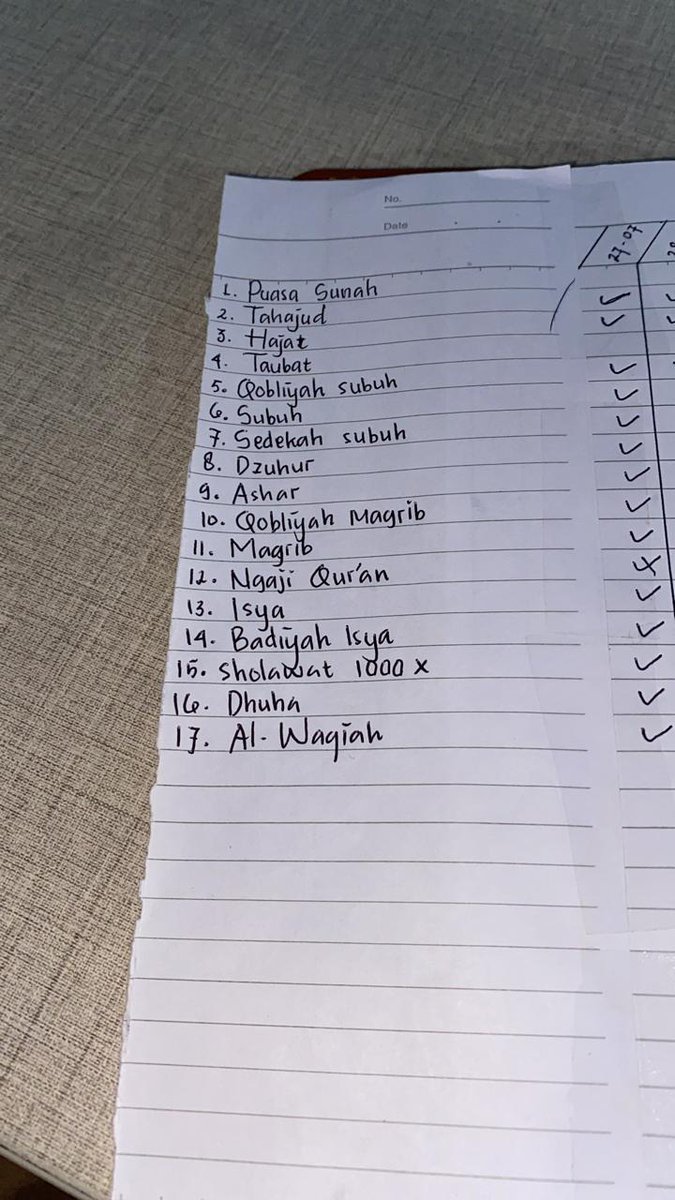 No.
Date
27-07
1. Puasa Sunah
2. Tahajud
3. Hajat
4. Taubat
5. Qobliyah subuh
6. Subuh
7. Sedekah subuh
8. Dzuhur
9. Ashar
10. Qobliyah Magrib
11. Magrib
12. Ngaji Qur'an
13. Isya
14. Badiyah Isya
15. Sholawat 1000 x
16. Dhuha
17. Al-Waqiah